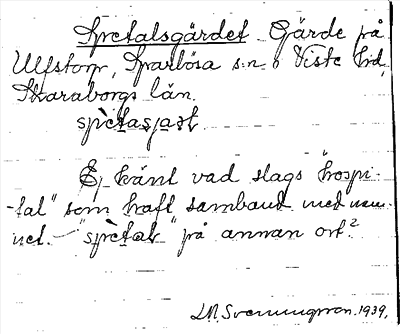 Spetalsgärdet. Gärde på
Ulfstorp, Sparlösa s:n o Viste hd,
Skaraborgs län.
spètasjaʂt.
Ej känt vad slags "hospi-
-tal" som haft samband med nam-
net. – "spètal" på annan ort?
1939.